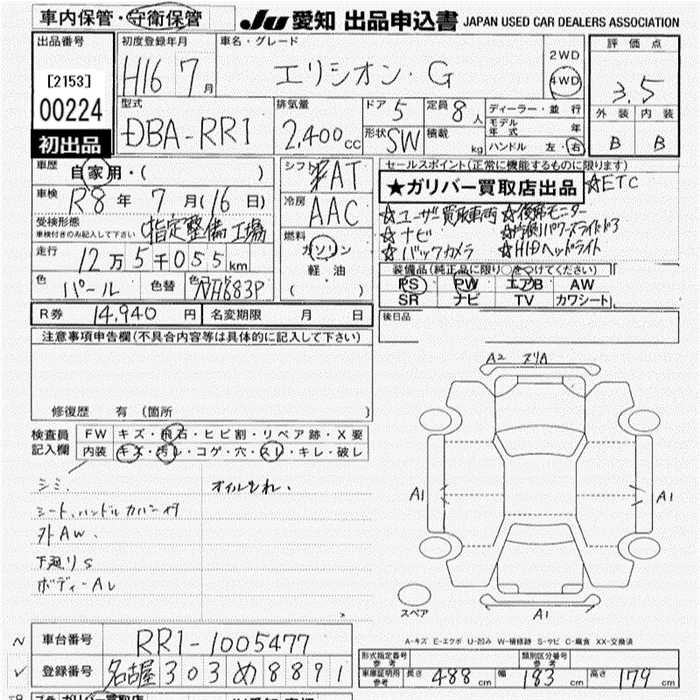 車内保管・守衛保管
JU 愛知 出品申込書 JAPAN USED CAR DEALERS ASSOCIATION
出品番号 初度登録年月 車名・グレード 評価点
[2153] H16 7月 エリシオン・G 2WD 4WD 3.5
00224 型式 排気量 ドア 5 定員 8人 ディーラー・並行 外装 内装
初出品 DBA-RR1 2,400cc 形状 SW 積載 kg モデル年式 年 B B
ハンドル 左・右
車歴 自家用・( ) シフト FAT セールスポイント(正常に機能するものに限ります)
車検 R8年 7月(16日) 冷房 AAC ★ガリバー買取店出品 ☆ETC
受検形態 車検付きのみ記入して下さい 指定整備工場 ☆ユーザー買取車両 ☆後席モニター
燃料 ガソリン 軽油 ( ) ☆ナビ ☆両側パワースライドドア
走行 12万5千055km ☆バックカメラ ☆HIDヘッドライト
色 パール 色替 色No NH883P 装備品(純正品に限り○をつけてください)
PS PW エアB AW
SR ナビ TV カワシート
R券 14,940円 名変期限 月 日 後日品
注意事項申告欄(不具合内容等は具体的に記入して下さい)
修復歴 有(箇所 )
検査員記入欄 FW キズ・飛石・ヒビ割・リペア跡・X要
内装 キズ・汚レ・コゲ・穴・スレ・キレ・破レ
シミ オイルもれ.
シート、ハンドル カバー付
外AW.
下廻りS
ボディーAレ
A2 スリA
A1 A1
スペア A1
A-キズ E-エクボ U-凹み W-補修跡 S-サビ C-腐食 XX-交換済
車台番号 RR1-1005477 形式指定番号 参考 類別区分番号 参考
登録番号 名古屋 303 め 8891 車庫証明用 参考 長さ 488cm 幅 183cm 高さ 179cm